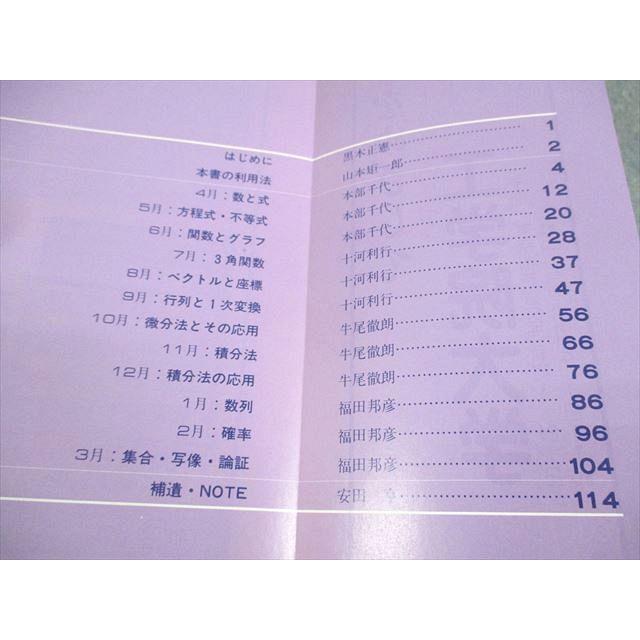 はじめに 黒木正憲 1
本書の利用法 山本矩一郎 2
4月:数と式 本部千代 4
5月:方程式・不等式 本部千代 12
6月:関数とグラフ 本部千代 20
7月:3角関数 十河利行 28
8月:ベクトルと座標 十河利行 37
9月:行列と1次変換 十河利行 47
10月:微分法とその応用 牛尾徹朗 56
11月:積分法 牛尾徹朗 66
12月:積分法の応用 牛尾徹朗 76
1月:数列 福田邦彦 86
2月:確率 福田邦彦 96
3月:集合・写像・論証 福田邦彦 104
補遺・NOTE 安田 114